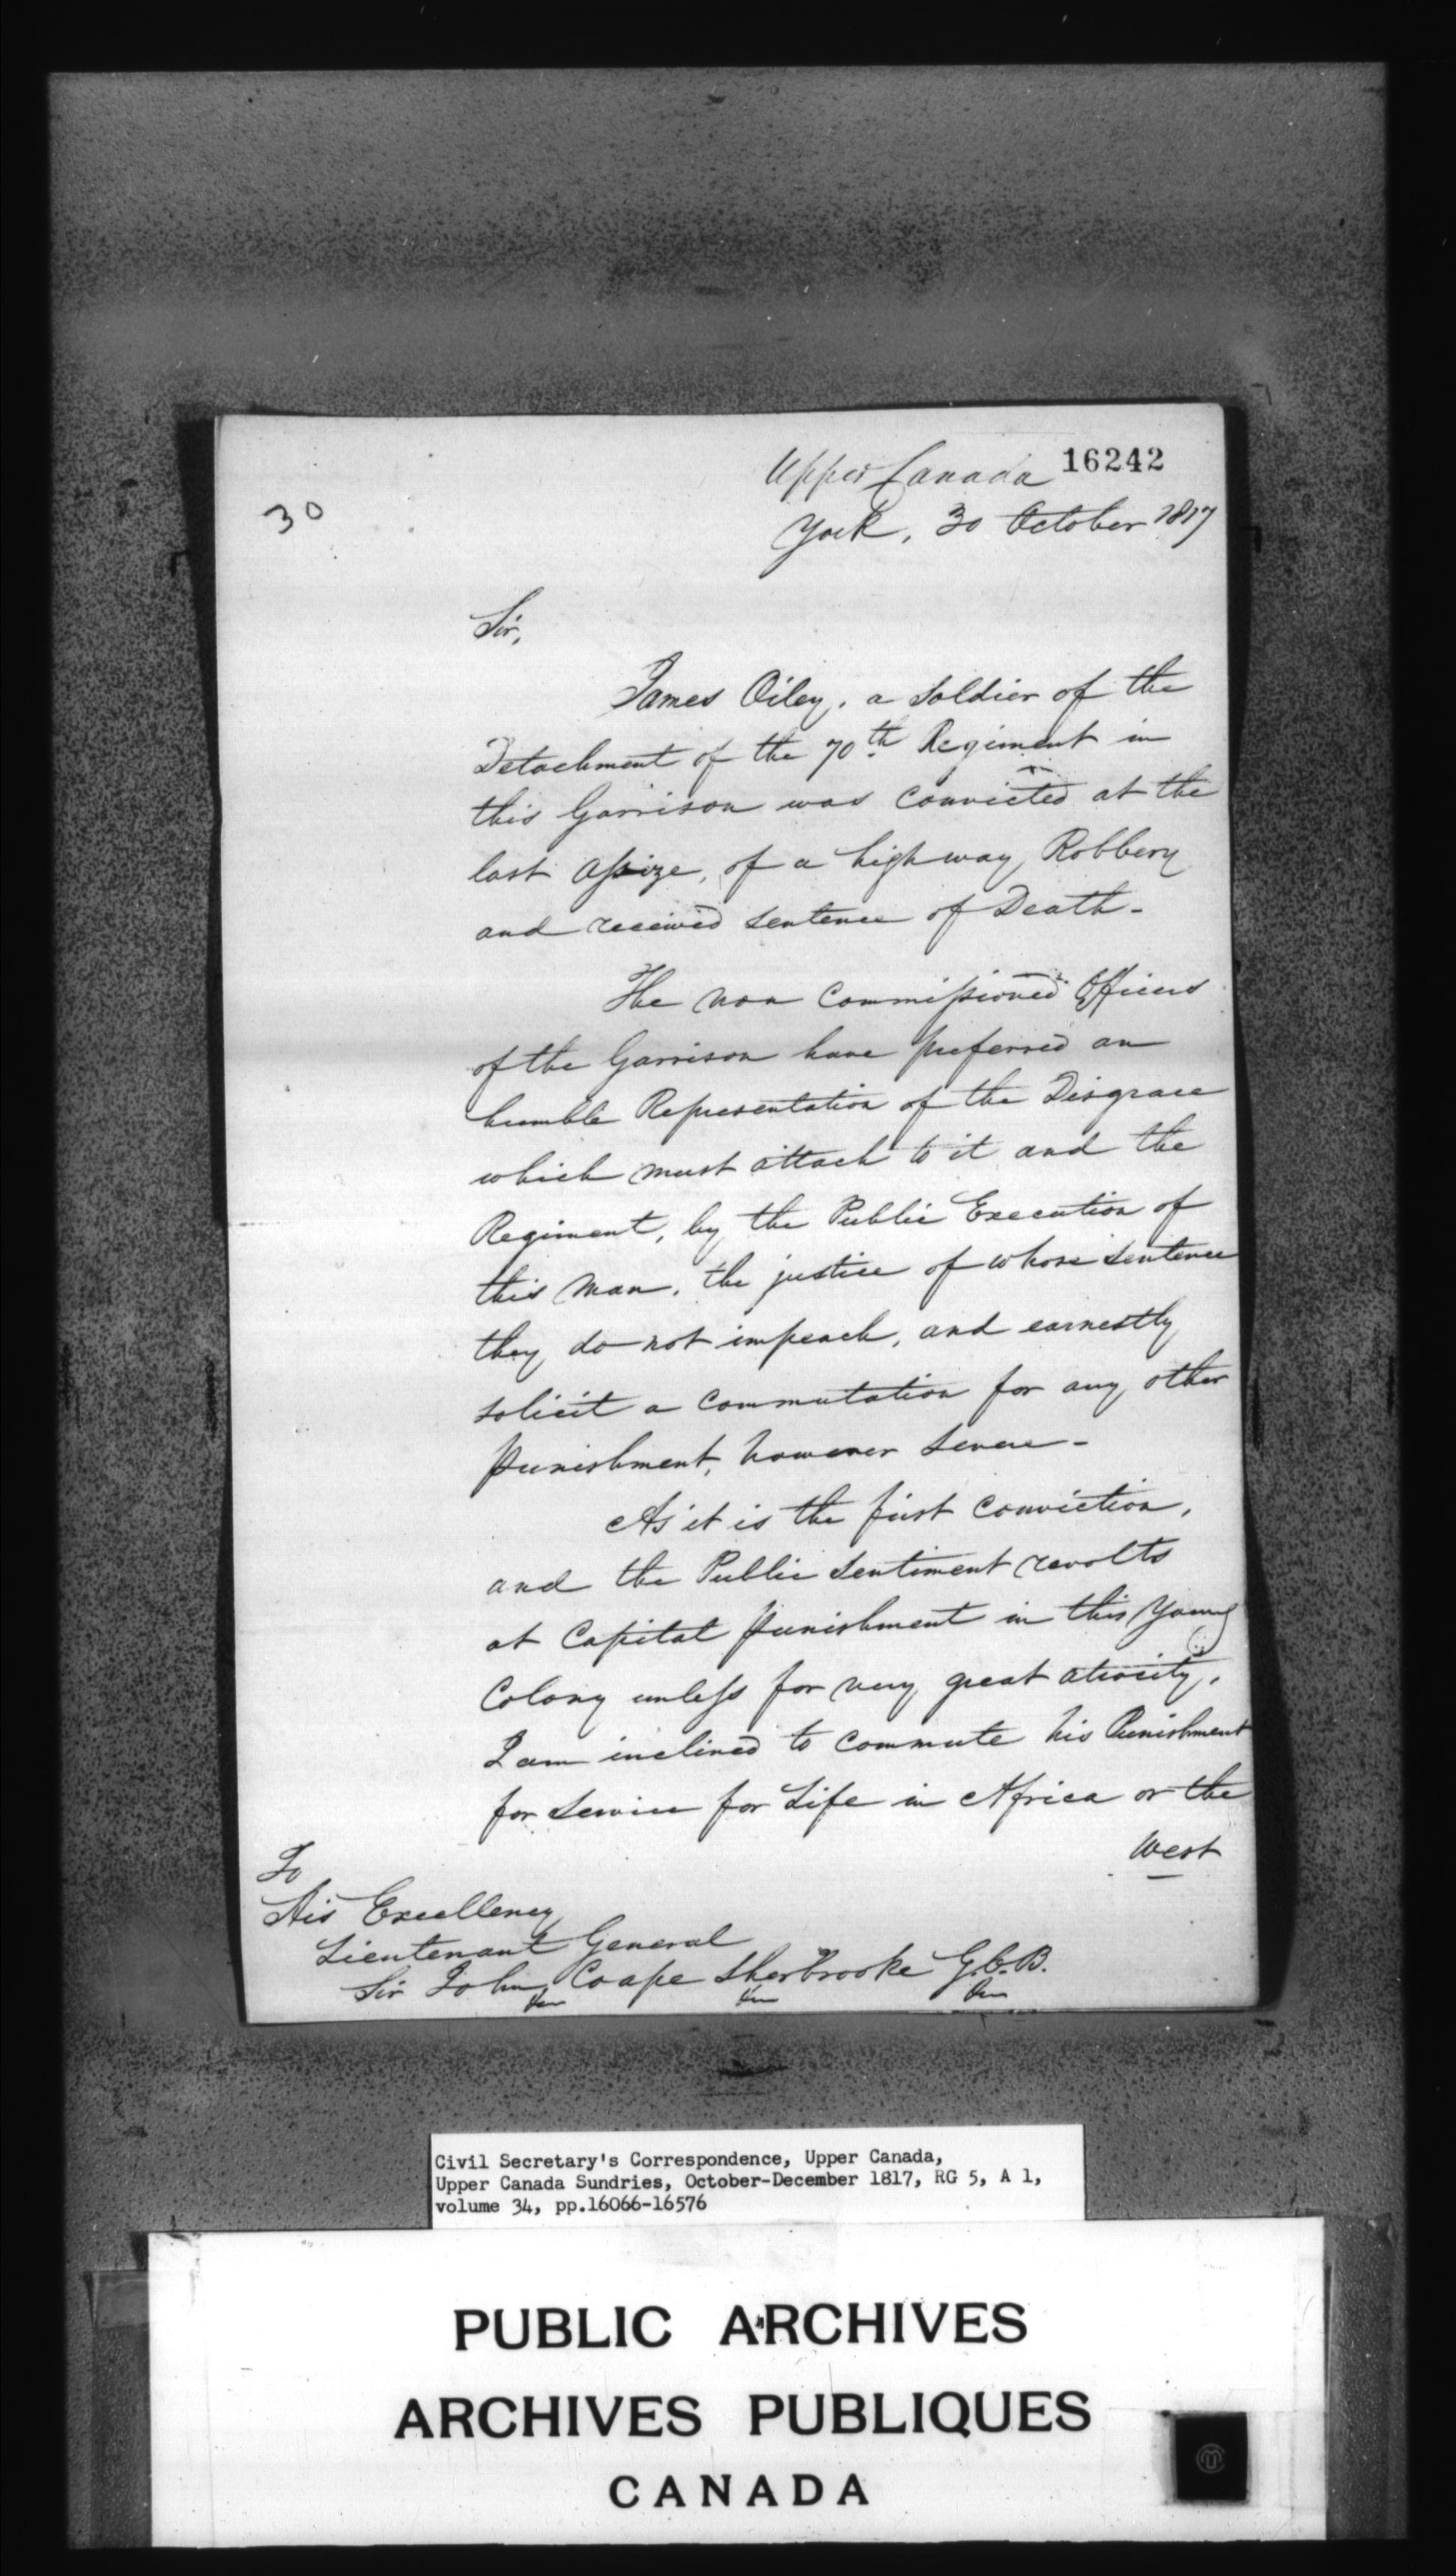 Upper Canada 16242
30
York, 30 October 1817
Sir,
James Oiley, a Soldier of the
Detachment of the 70th Regiment in
this Garrison was convicted at the
last Assize, of a highway Robbery
and received sentence of Death-
The non Commissioned Officers
of the Garrison have preferred an
humble Representation of the Disgrace
which must attach to it and the
Regiment, by the Public Execution of
this man, the justice of whose sentence
they do not impeach, and earnestly
solicit a commutation for any other
Punishment, however severe-
As it is the first conviction,
and the Public sentiment revolts
at Capital Punishment in this Young
Colony unless for very great atrocity,
I am inclined to commute his Punishment
for Service for Life in Africa or the
West
To
His Excellency
Lieutenant General
Sir John Coape Sherbrooke G.C.B.
Civil Secretary's Correspondence, Upper Canada,
Upper Canada Sundries, October-December 1817, RG 5, A 1,
volume 34, pp.16066-16576
PUBLIC ARCHIVES
ARCHIVES PUBLIQUES
CANADA